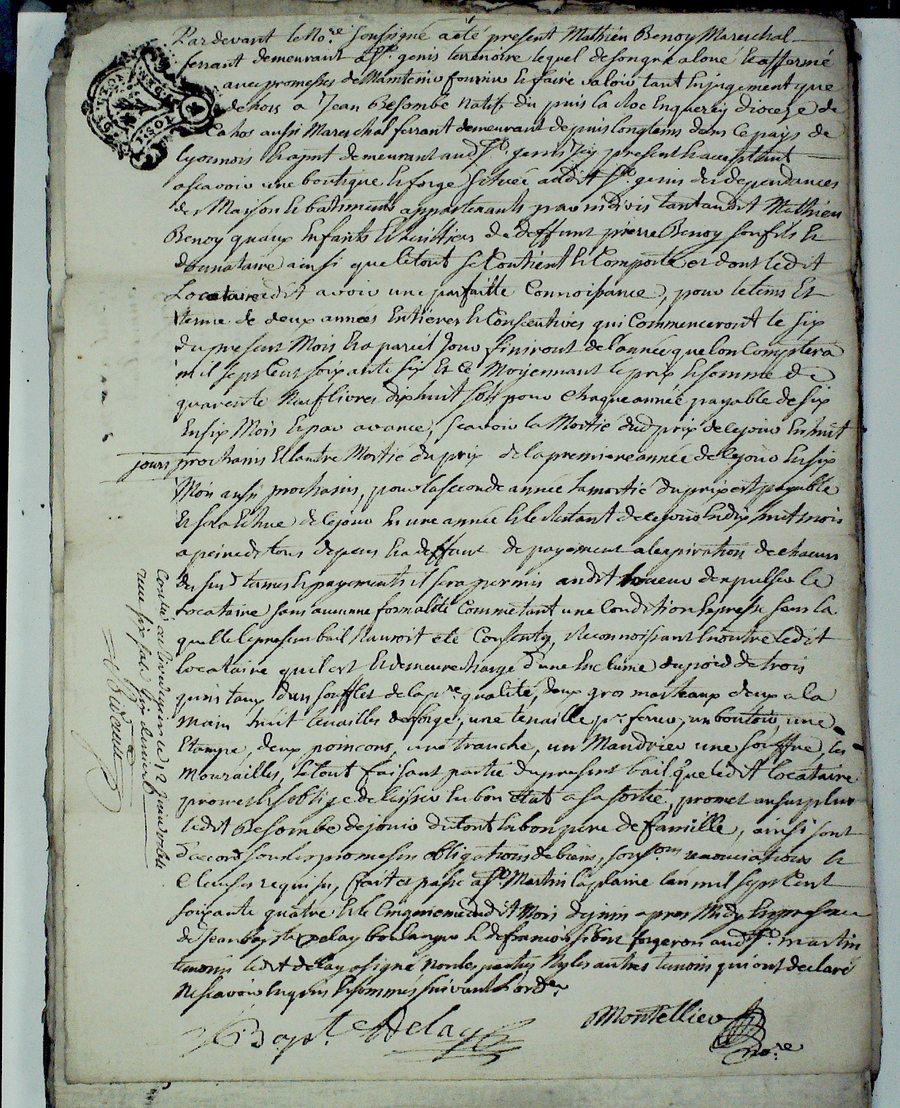 Pardevant le No.re soussigné a été present Mathieu Benoy Mareschal
ferrant demeurant a S.t genis terrenoire lequel de son gré a loué et affermé
avec promesses de Maintenir fournir et faire valoir tant en jugement que
dehors a Jean Besombe Natif du puis la Roc Enquercy dioceze de
Cahos aussi Mareschal ferrant demeurant depuis longtems dans ce pays de
Lyonnois Et apnt demeurant aud S.t genis icy present et acceptant
ascavoir une boutique et forge Scituée audit S.t genis des dependances
des Maison et batiments appartenants par indivis tant audit Mathieu
Benoy quaux Enfants et heritiers de deffunt pierre Benoy son fils Et
donnataire ainsi que le tout se Contient et Comporte et dont ledit
Locataire dit avoir une parfaitte Connoissance, pour le tems Et
terme de deux années Entieres et Consecutives qui Commenceront le six
du present Mois et a pareil jour finiront de l'année que lon Comptera
mil sept Cent soixante six Et ce Moyennant le prix et somme de
quarente Neuf livres dix huit sols pour chaque année payable de six
En six Mois et par avance, scavoir la Moitié dud prix de ce jour En huit
jours prochains Et l'autre Moitié du prix de la premiere année de ce jour En six
Mois aussi prochains, pour la seconde année la moitié du prix est payable
Et sera Echue de ce jour En une année et le Restant de ce jour En dix huit mois
a peine de tous depens Et a deffaut de payement a l'expiration de chacun
des susd termes et payements il sera permis audit bailleur d'expulser le
Locataire sans aucune formalité Commettant une Condition Expresse sans la
quelle le present bail N'auroit été Consenty, Reconnoissant En outre ledit
Locataire qu'il est Et demeure chargé d'une Enclume du poid de trois
quintaux d'un soufflet de la p.re qualité, deux gros marteaux deux a la
main huit tenailles de forge, une tenaille p.r ferrer, un boutoir, une
Etampe, deux poincons, une tranche, un Mandrier une les
Mourailles, le tout faisant partie du present bail que ledit Locataire
promet et s'oblige de laisser En bon état a sa sortie, promet au surplus
ledit Besombe de jouir du tout En bon pere de famille, ainsi sont
d'accord sous les promesses obligations de biens, soum.ons renonciations et
Clauses requises, fait et passé a S.t Martin la plaine l'an mil sept Cent
soixante quatre et le Cinquieme dudit Mois de juin apres Midy En presence
de Jean bap.te delay boullanger et de francois forgeron aud S.t martin
temoins ledit delay a signé Non les parties Ny les autres temoin qui ont declaré
Ne scavoir Enquis Et sommés suivant l'ord.ce
J Bapt. delay
Montellier
No.re
Controllé a Rivedegier ce 12 juin 1764
reçu six sols six deniers